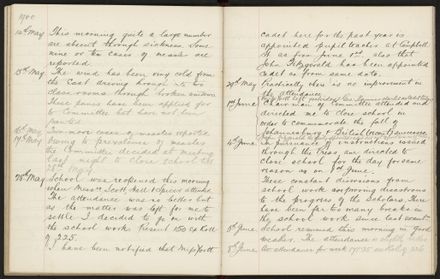 1900
14th May This morning quite a large number
are absent through sickness. Some
nine or ten cases of measles are
reported.
15th May The wind has been very cold from
the East driving through into the
class rooms through broken windows
These panes have been applied for
to Committee but have not been
16th May Two more cases of measles reported
17th May Owing to prevalence of measles
the Committee decided at meeting
last night to close school till
28th May School was reopened this morning
when Miss Scott
The attendance was no better but
as the matter was left for me to
settle I decided to go on with
the school work. Present 150 of Roll
of 225.
I have been notified that Miss Scott
cadet here for the past year is
appointed pupil teacher at Campbell
St as from June 1st also that
John Fitzgerald has been appointed
cadet as from same date.
29th May Practically there is no improvement in
the attendance
1st June Chairman of Committee attended and
directed me to close school in
order to commemorate the fall of
Johannesburg
in pursuance of instructions issued
through the Press was directed to
close school for the day for same
reason as on 1st June.
These constant divisions from
school work are proving disastrous
to the progress of the Scholars. There
have been far too many breaks in
the school work since last
School resumed this morning in good
weather. The attendance is slightly better
8th June Ave attendance for week